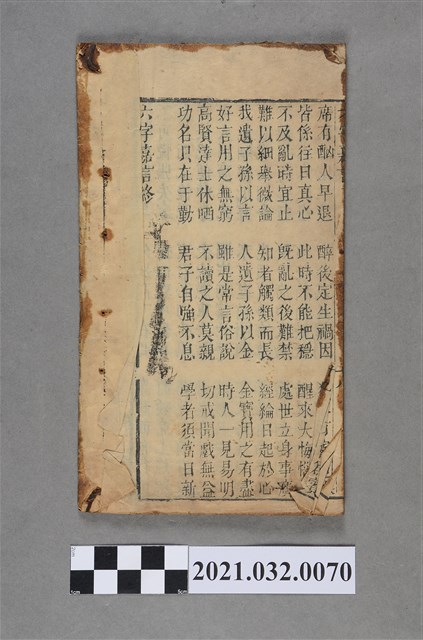 席有酗人早退　醉後定生禍因
皆係往日真心　此時不能把穩　醒來大悔
不及亂時宜止　旣亂之後難禁　處世立身事
難以細舉微論　知者觸類而長　經綸日起於心
我遺子孫以言　人遺子孫以金　金寳用之有盡
好言用之無窮　雖是常言俗說　時人一見易明
高賢達士休哂　不讀之人莫親　切戒閒戲無益
功名只在于勤　君子自強不息　學者須當日新
六字嘉言終
2021.032.0070